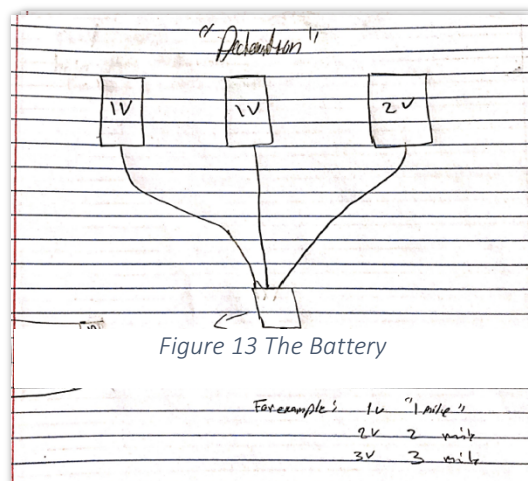 1V 1V 2V
Figure 13 The Battery
For example: 1v "1 mile"
2v 2 mile
3v 3 mile